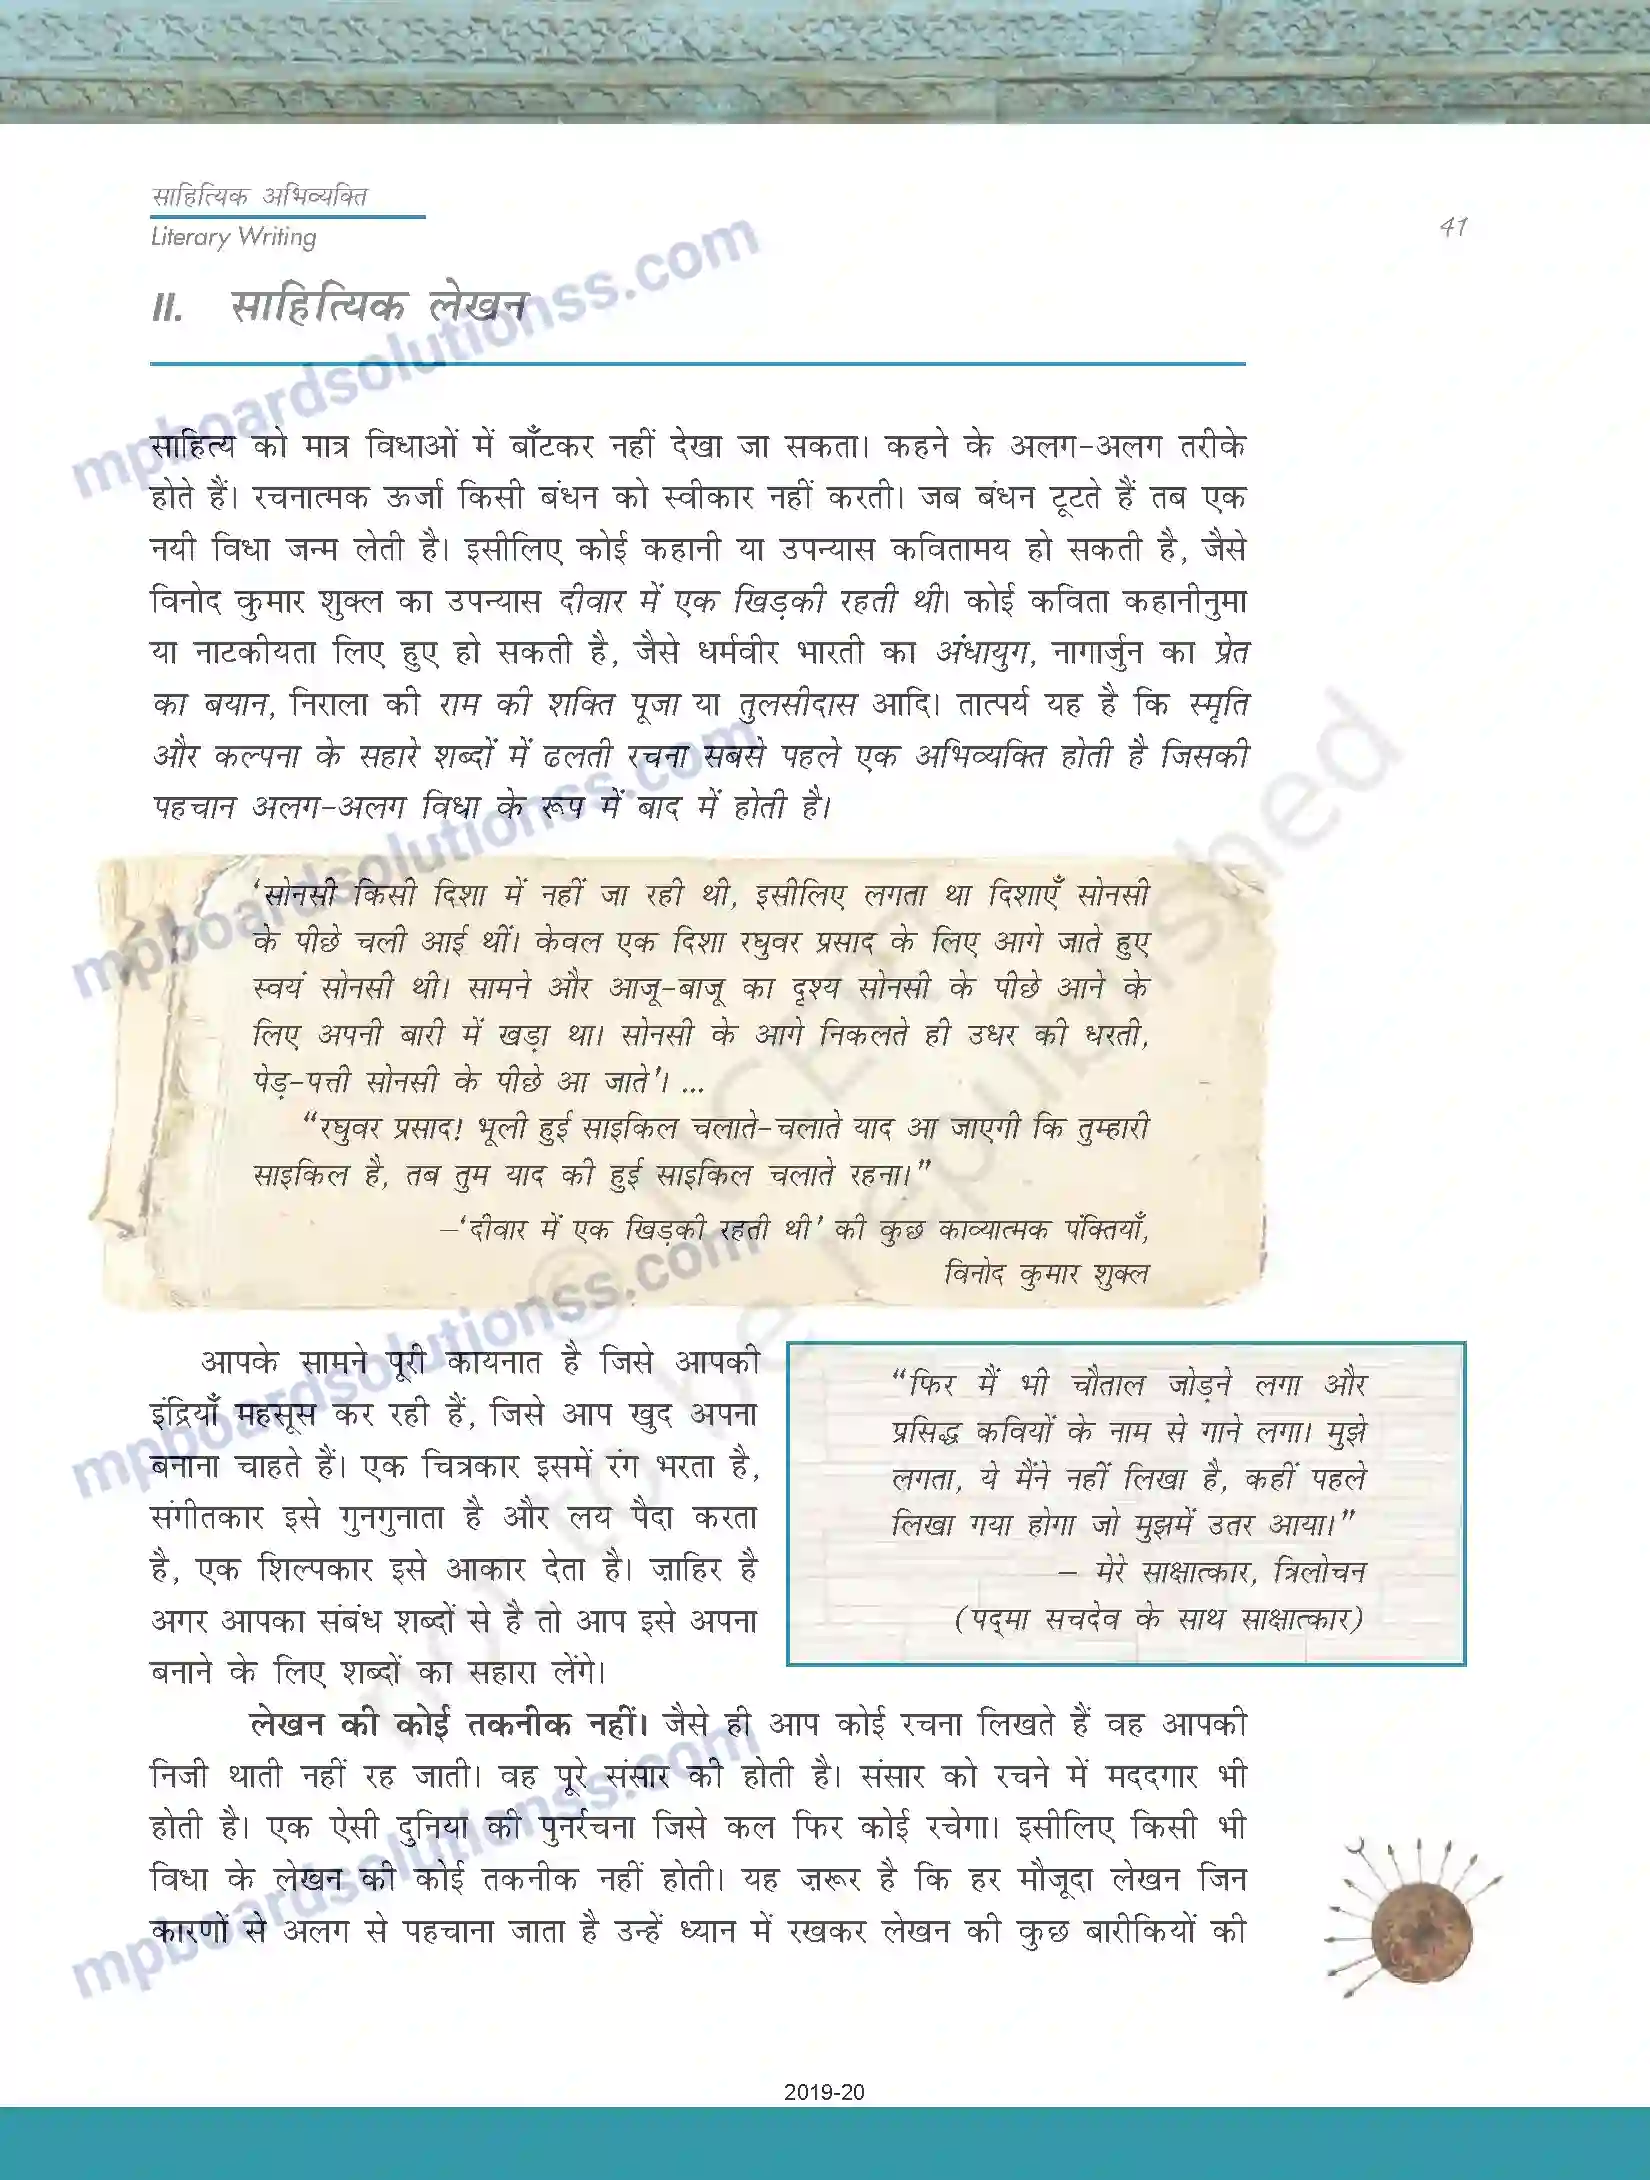 साहित्यिक अभिव्यक्ति
Literary Writing
41
II. साहित्यिक लेखन
साहित्य को मात्र विधाओं में बाँटकर नहीं देखा जा सकता। कहने के अलग-अलग तरीके
होते हैं। रचनात्मक ऊर्जा किसी बंधन को स्वीकार नहीं करती। जब बंधन टूटते हैं तब एक
नयी विधा जन्म लेती है। इसीलिए कोई कहानी या उपन्यास कवितामय हो सकती है, जैसे
विनोद कुमार शुक्ल का उपन्यास दीवार में एक खिड़की रहती थी। कोई कविता कहानीनुमा
या नाटकीयता लिए हुए हो सकती है, जैसे धर्मवीर भारती का अंधायुग, नागार्जुन का प्रेत
का बयान, निराला की राम की शक्ति पूजा या तुलसीदास आदि। तात्पर्य यह है कि स्मृति
और कल्पना के सहारे शब्दों में ढलती रचना सबसे पहले एक अभिव्यक्ति होती है जिसकी
पहचान अलग-अलग विधा के रूप में बाद में होती है।
‘सोनसी किसी दिशा में नहीं जा रही थी, इसीलिए लगता था दिशाएँ सोनसी
के पीछे चली आई थीं। केवल एक दिशा रघुवर प्रसाद के लिए आगे जाते हुए
स्वयं सोनसी थी। सामने और आजू-बाजू का दृश्य सोनसी के पीछे आने के
लिए अपनी बारी में खड़ा था। सोनसी के आगे निकलते ही उधर की धरती,
पेड़-पत्ती सोनसी के पीछे आ जाते’। ...
“रघुवर प्रसाद! भूली हुई साइकिल चलाते-चलाते याद आ जाएगी कि तुम्हारी
साइकिल है, तब तुम याद की हुई साइकिल चलाते रहना।”
–‘दीवार में एक खिड़की रहती थी’ की कुछ काव्यात्मक पंक्तियाँ,
विनोद कुमार शुक्ल
आपके सामने पूरी कायनात है जिसे आपकी
इंद्रियाँ महसूस कर रही हैं, जिसे आप खुद अपना
बनाना चाहते हैं। एक चित्रकार इसमें रंग भरता है,
संगीतकार इसे गुनगुनाता है और लय पैदा करता
है, एक शिल्पकार इसे आकार देता है। ज़ाहिर है
अगर आपका संबंध शब्दों से है तो आप इसे अपना
बनाने के लिए शब्दों का सहारा लेंगे।
“फिर मैं भी चौताल जोड़ने लगा और
प्रसिद्ध कवियों के नाम से गाने लगा। मुझे
लगता, ये मैंने नहीं लिखा है, कहीं पहले
लिखा गया होगा जो मुझमें उतर आया।”
– मेरे साक्षात्कार, त्रिलोचन
(पद्मा सचदेव के साथ साक्षात्कार)
लेखन की कोई तकनीक नहीं। जैसे ही आप कोई रचना लिखते हैं वह आपकी
निजी थाती नहीं रह जाती। वह पूरे संसार की होती है। संसार को रचने में मददगार भी
होती है। एक ऐसी दुनिया की पुनर्रचना जिसे कल फिर कोई रचेगा। इसीलिए किसी भी
विधा के लेखन की कोई तकनीक नहीं होती। यह ज़रूर है कि हर मौजूदा लेखन जिन
कारणों से अलग से पहचाना जाता है उन्हें ध्यान में रखकर लेखन की कुछ बारीकियों की
2019-20
mpboardsolutionss.com
mpboardsolutionss.com
mpboardsolutionss.com
mpboardsolutionss.com
© NCERT
not to be republished